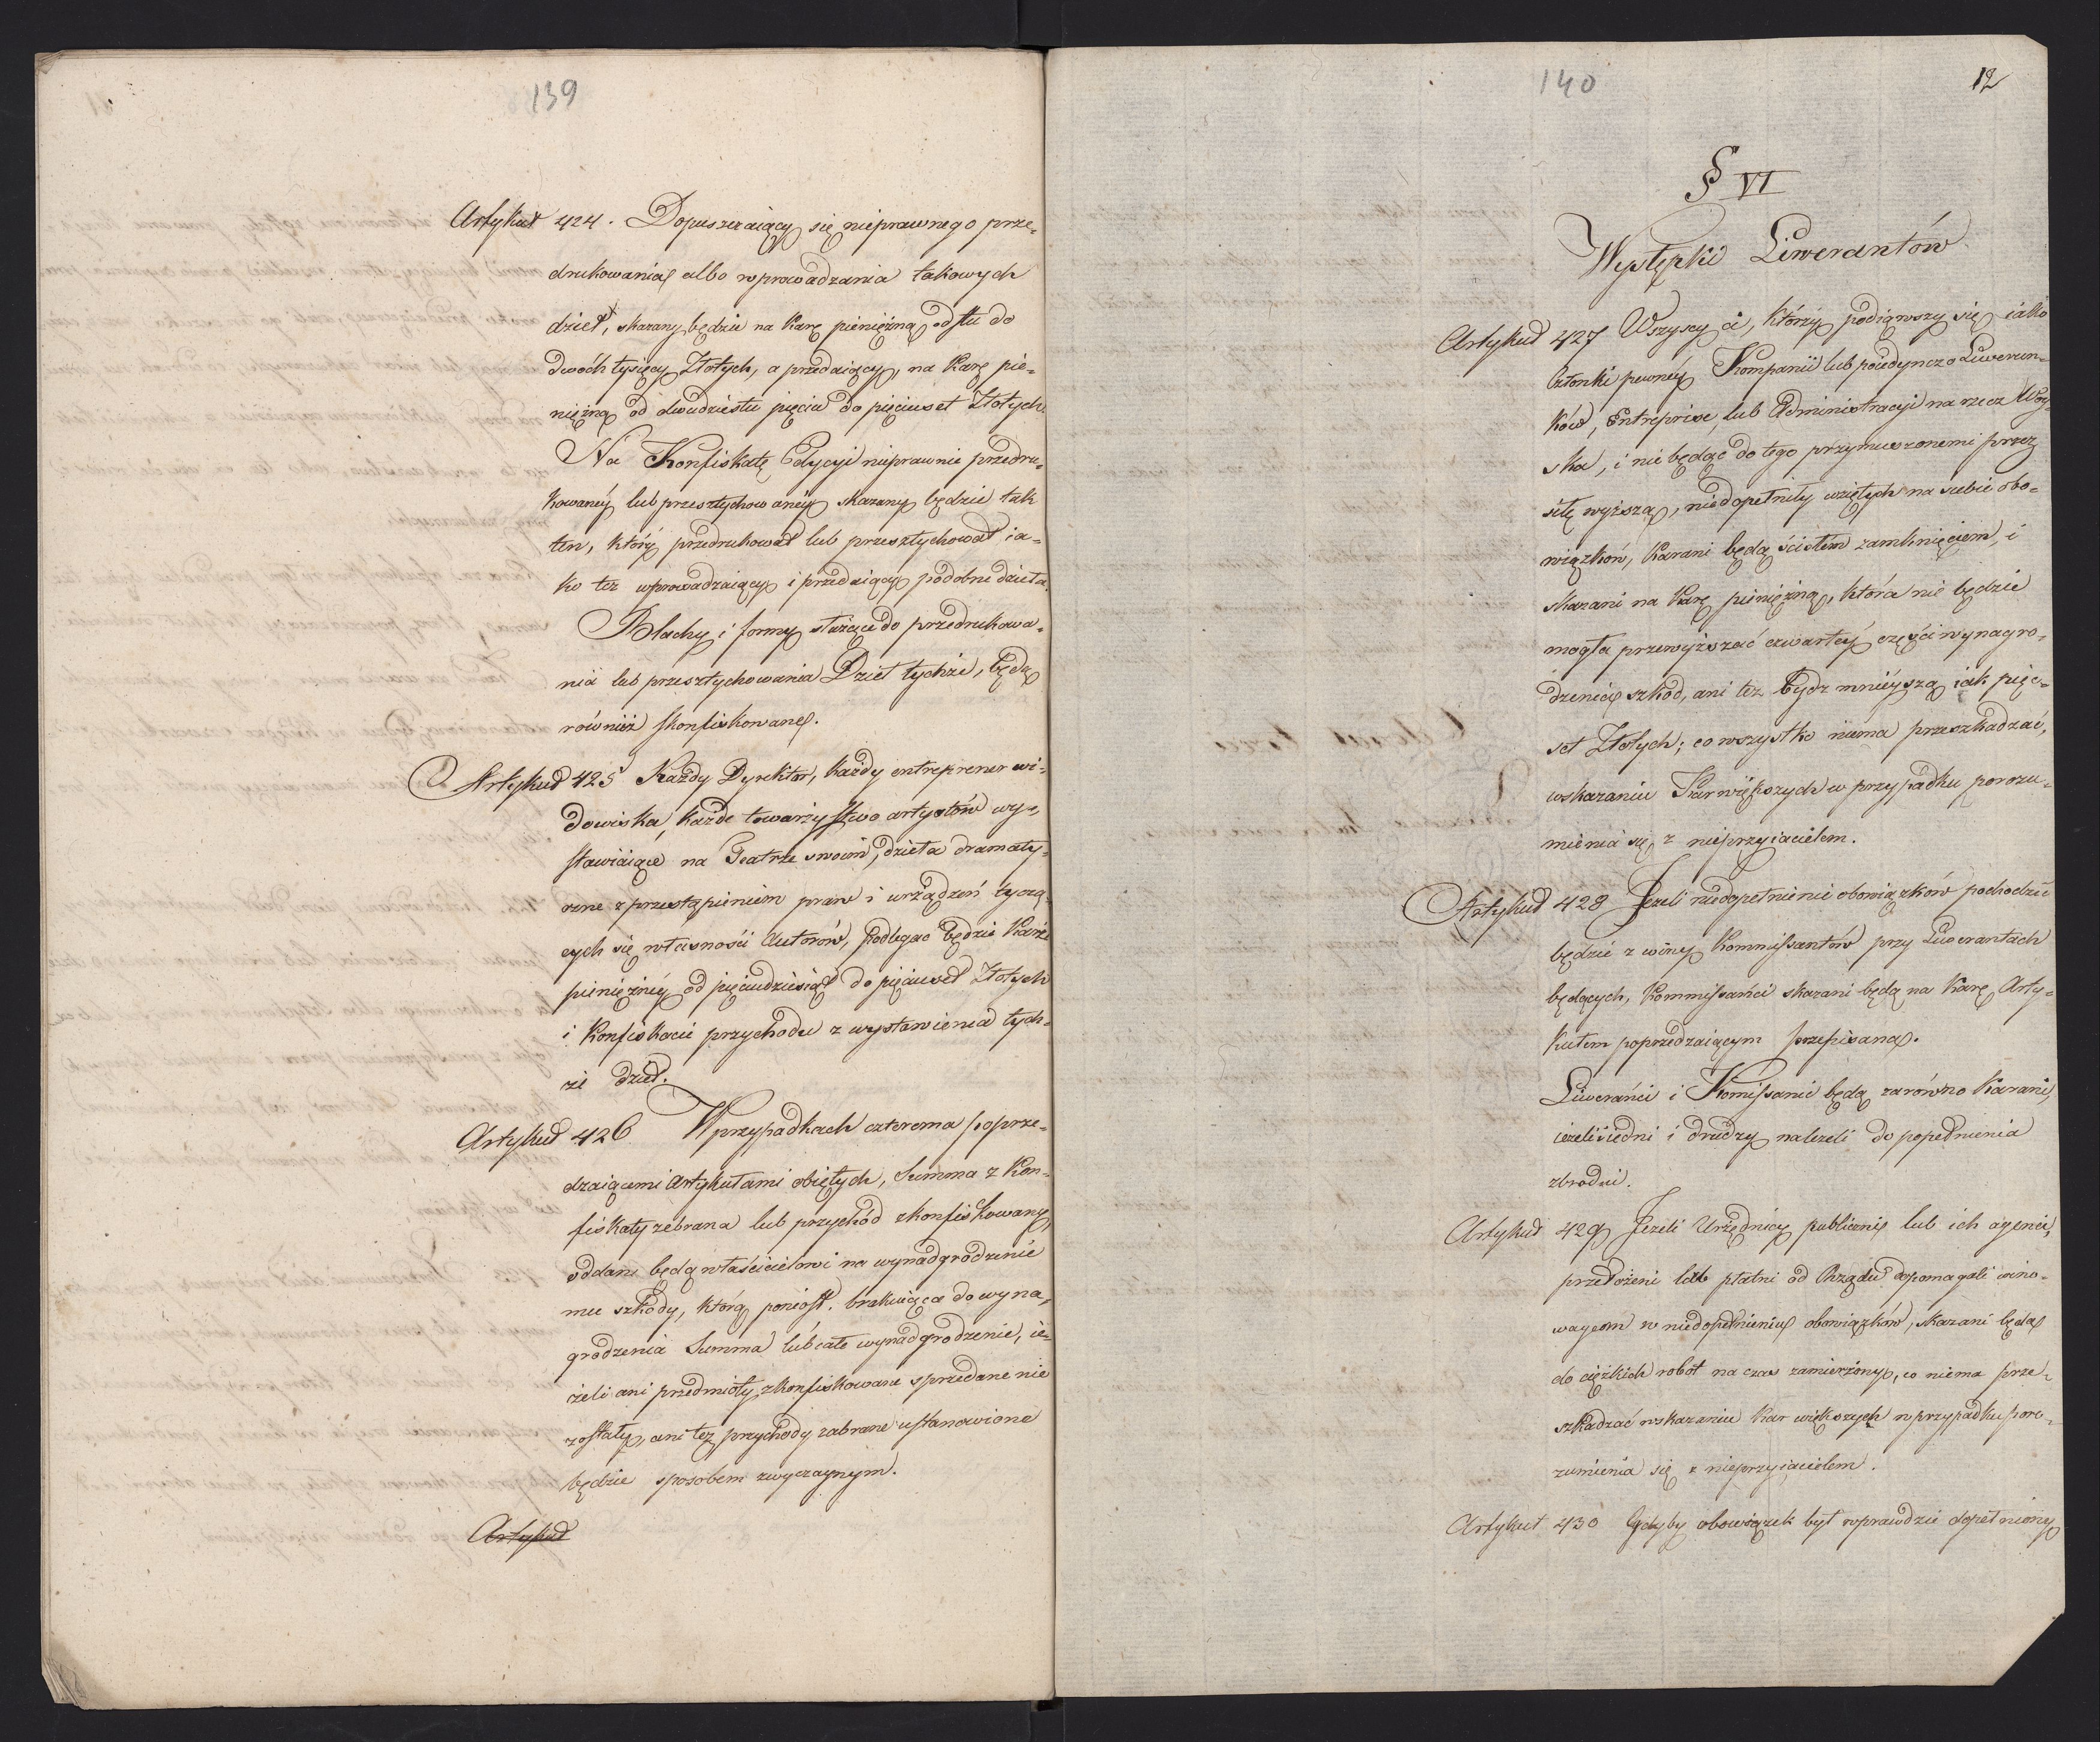 139
Artykuł 424. Dopuszczaiący się nieprawnego prze-
drukowania albo wprowadzania takowych
dzieł, skazany będzie na karę pieniężną od stu do
dwóch tysięcy Złotych, a przedaiący, na karę pie-
niężną od dwudziestu pięciu do pięciuset Złotych.
Na Konfiskatę Edycyi nieprawnie przedru-
kowanéy lub przesztychowanéy skazany będzie tak
ten, który przedrukował lub przesztychował ia-
ko też wprowadzaiący i przedaiący podobne dzieła.
Blachy i formy służące do przedrukowa-
nia lub przesztychowania Dzieł tychże, będą
również skonfiskowane.
Artykuł 425 Każdy Dyrektor, każdy entreprener wi-
dowiska, każde towarzystwo artystów wy-
stawiaiące na Teatrze swoim, dzieła dramaty-
czne z przestąpieniem praw i urządzeń tyczą-
cych się własności Autorów, podlegać będzie karze
pieniężnéy od pięciudziesiąt do pięciuset Złotych
i konfiskacie przychodu z wystawienia tych-
że dzieł.
Artykuł 426 W przypadkach czterema poprze-
dzaiącemi Artykułami obiętych, Summa z kon-
fiskaty zebrana lub przychód skonfiskowany,
oddane będą właścicielowi na wynadgrodzenie
mu szkody, którą poniosł. brakuiąca do wyna-
grodzenia Summa lub całe wynadgrodzenie, ie-
żeli ani przedmioty zkonfiskowane sprzedane nie
zostały, ani też przychody zabrane ustanowione
będzie sposobem zwyczaynym.
Artykuł
140
12
§ VI
Występki Liwerantów
Artykuł 427 Wszyscy ci, którzy podiąwszy się iako
Członki pewnéy Kompanii lub poiedynczo Liwerun-
ków, Entreprise, lub Administracyi na rzecz Woy-
ska, i nie będąc do tego przymuszonemi przez
siłę wyższą, niedopełnily wziętych na siebie obo-
wiązków, karani będą ścisłem zamknięciem, i
skazani na karę pieniężną, która nie będzie
mogła przewyższać czwartéy części wynagro-
dzenia szkód, ani też bydz mnieyszą iak pięc-
set Złotych; co wszystko niema przeszkadzać,
wskazaniu Kar więĸszych w przypadku porozu-
mienia się z nieprzyiacielem.
Artykuł 428 Jeżeli niedopełnienie obowiązków pochodzić
będzie z winy Kommissantów przy Liwerantach
będących, Kommissanci skazani będą na karę Arty-
kułem poprzedzaiącym przepisaną.
Liweranci i Komissanci będą zarówno karani,
ieżeli iedni i drudzy należeli do popełnienia
zbrodni.
Artykuł 429 Jeżeli Urzędnicy publiczni lub ich agenci,
przełożeni lub płatni od Rządu dopomagali wino-
waycom w niedopełnieniu obowiązków, skazani będą
do ciężkich robót na czas zamierzony, co niema prze-
szkadzać wskazaniu kar większych w przypadku poro-
zumienia się z nieprzyiacielem.
Artykuł 430 Gdyby obowiązek był wprawdzie dopełniony